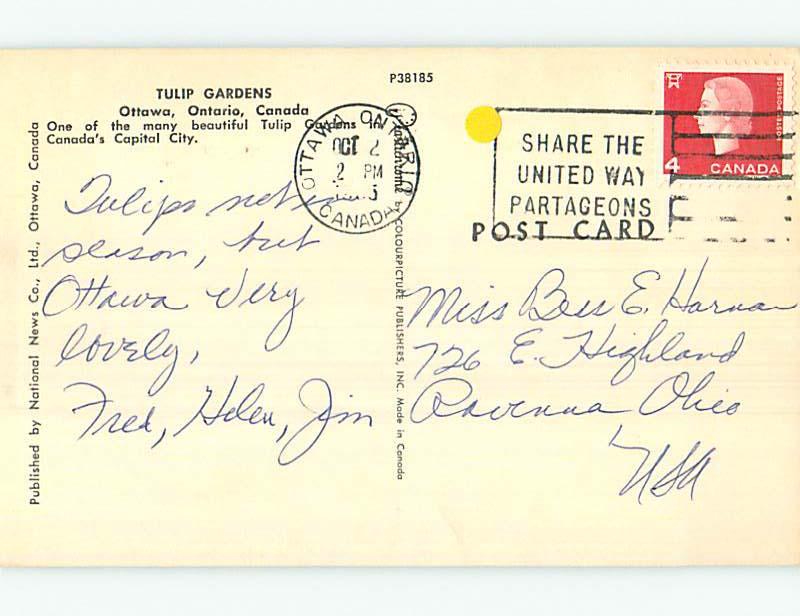 P38185
TULIP GARDENS
Ottawa, Ontario, Canada
One of the many beautiful Tulip Gardens in
Canada's Capital City.
OTTAWA ONTARIO
OCT 2
2 PM
CANADA
SHARE THE
UNITED WAY
PARTAGEONS
4
CANADA
POSTES POSTAGE
POST CARD
Tulips not in
season, but
Ottawa Very
lovely,
Fred, Helen, Jim
Miss Bess E. Harman
726 E. Highland
Ravenna Ohio
USA
Published by National News Co., Ltd., Ottawa, Canada
by COLOURPICTURE PUBLISHERS, INC. Made in Canada